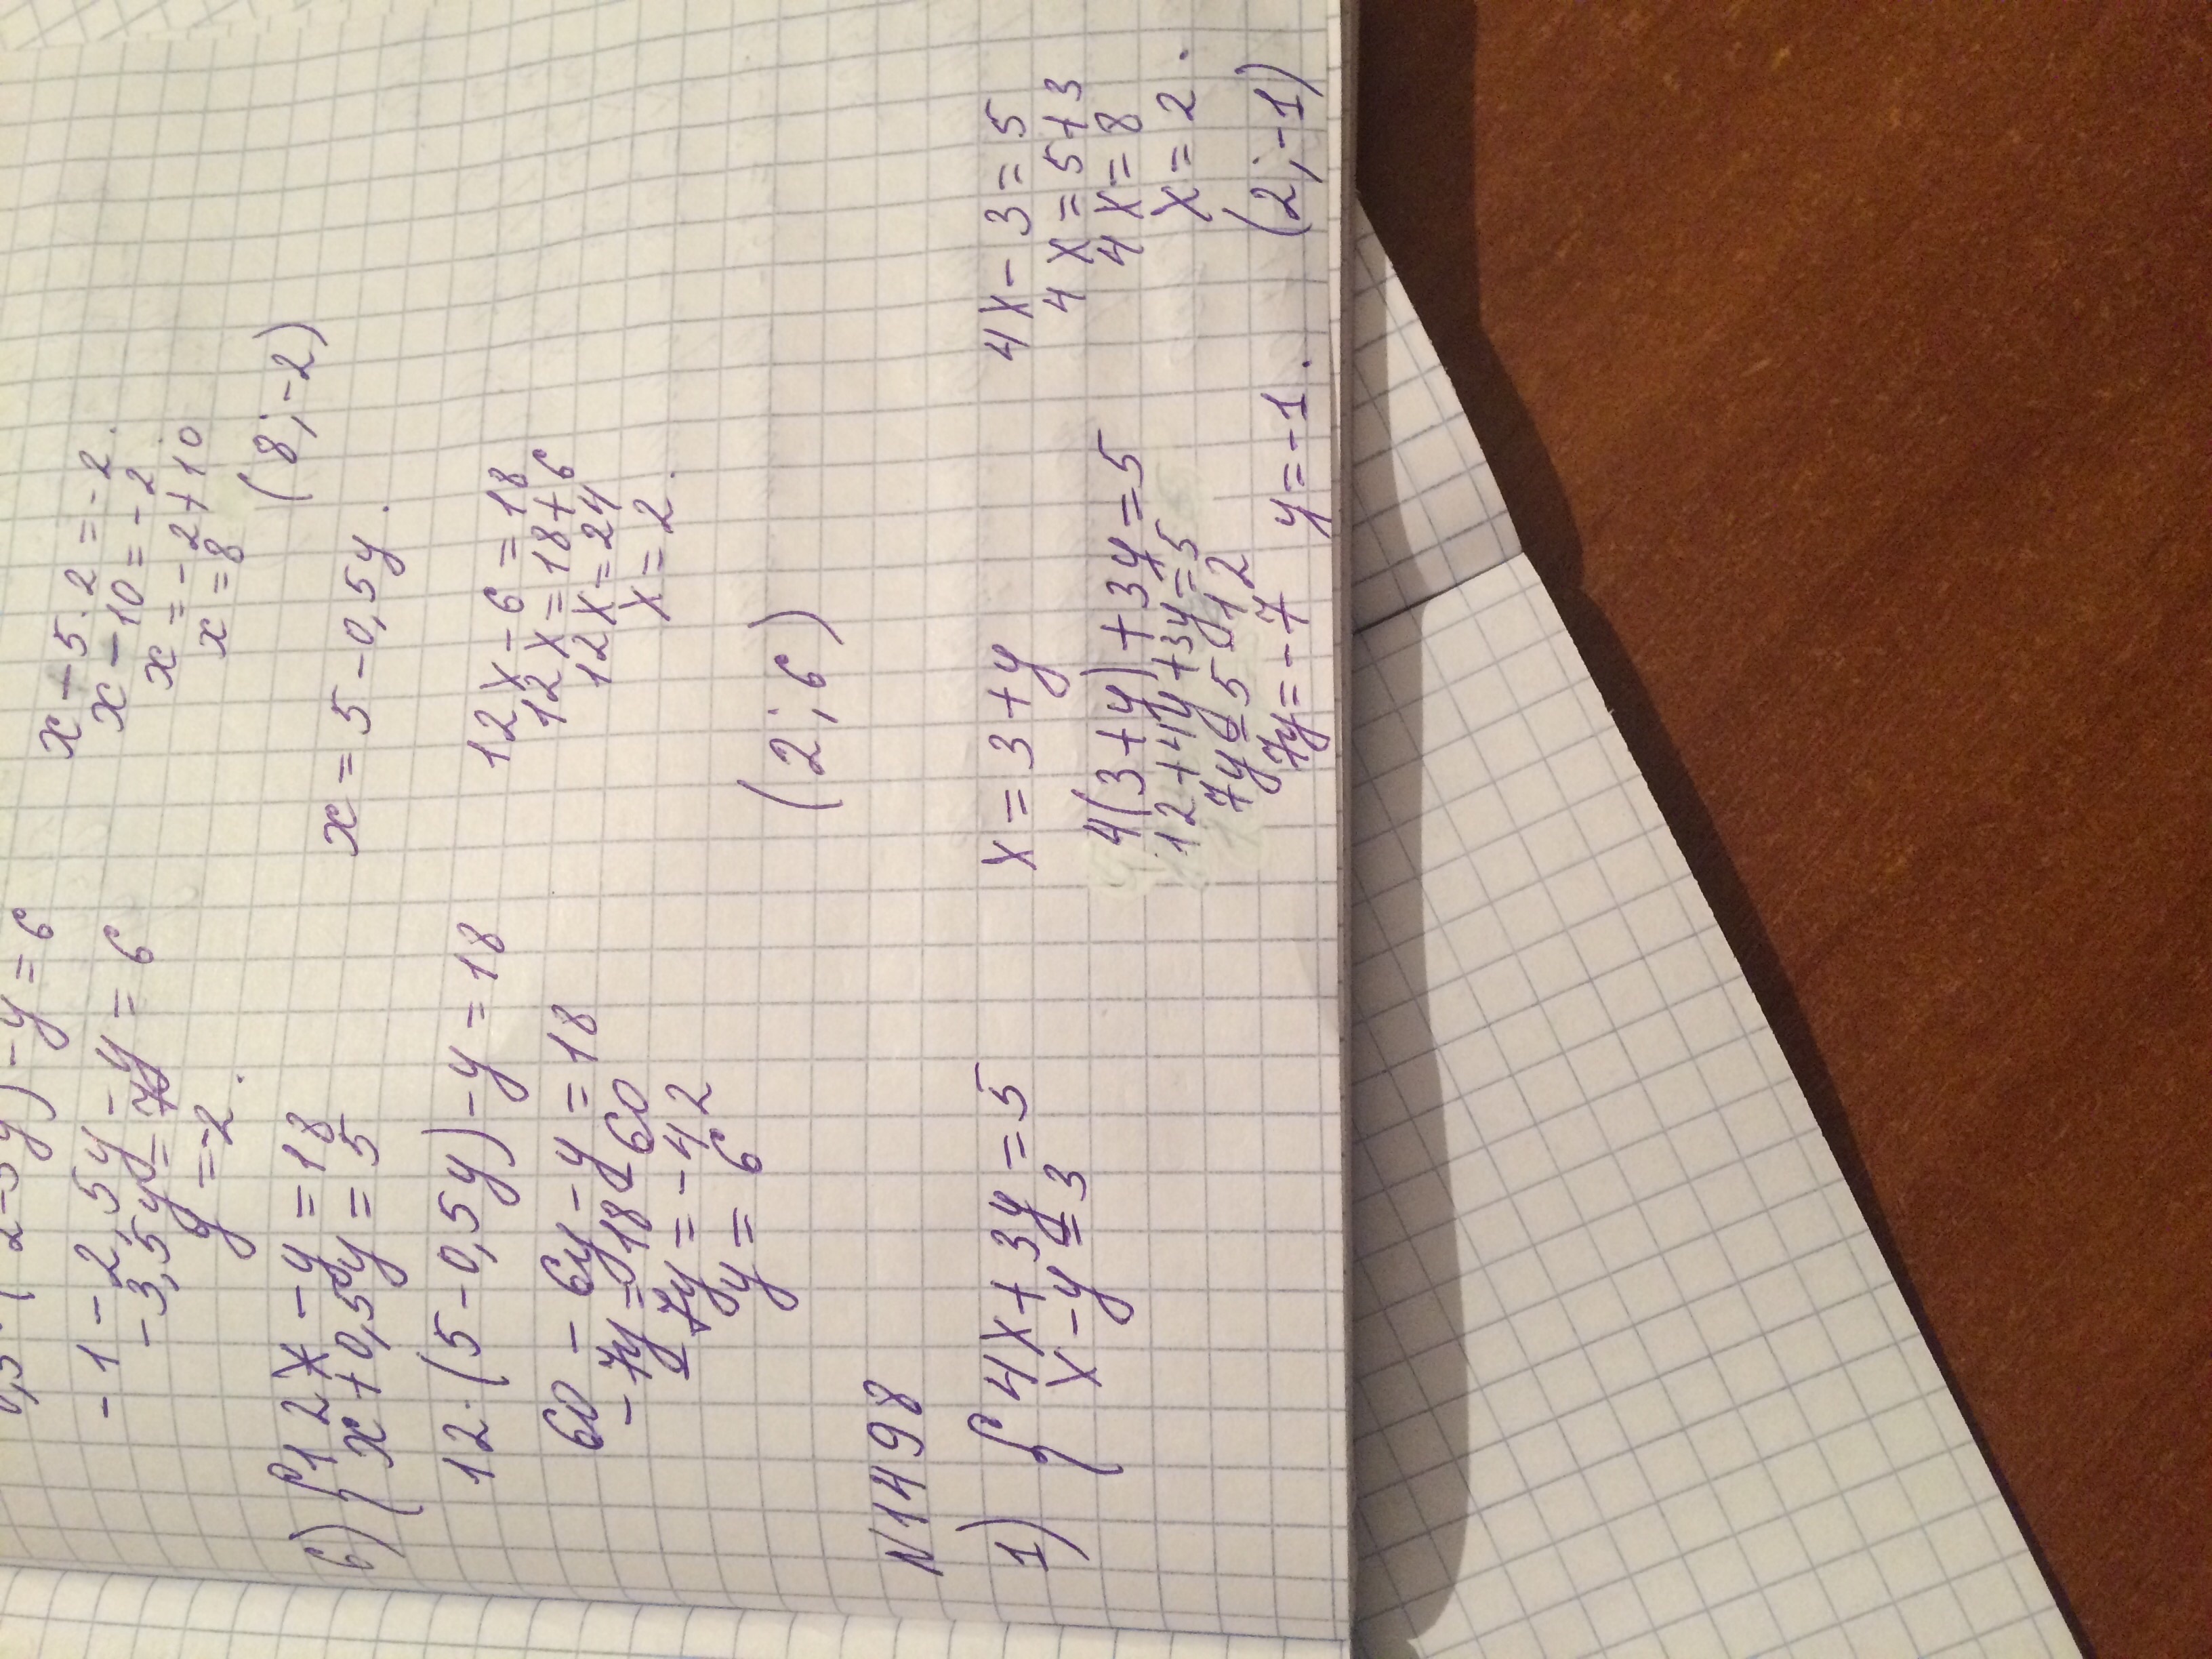 - y = 6
x - 5 · 2 = -2.
-1 - 2,5y - y = 6
x - 10 = -2
-3,5y = 7
x = -2 + 10
y = -2.
x = 8
(8; -2)
6) { 12x - y = 18
x + 0,5y = 5
x = 5 - 0,5y.
12 · (5 - 0,5y) - y = 18
12x - 6 = 18
60 - 6y - y = 18
12x = 18 + 6
-7y = 18 - 60
12x = 24
-7y = -42
x = 2.
y = 6
(2; 6)
N1498
1) { 4x + 3y = 5
x - y = 3
x = 3 + y
4x - 3 = 5
4(3 + y) + 3y = 5
4x = 5 + 3
12 + 4y + 3y = 5
4x = 8
7y = 5 - 12
x = 2.
7y = -7 y = -1.
(2; -1)